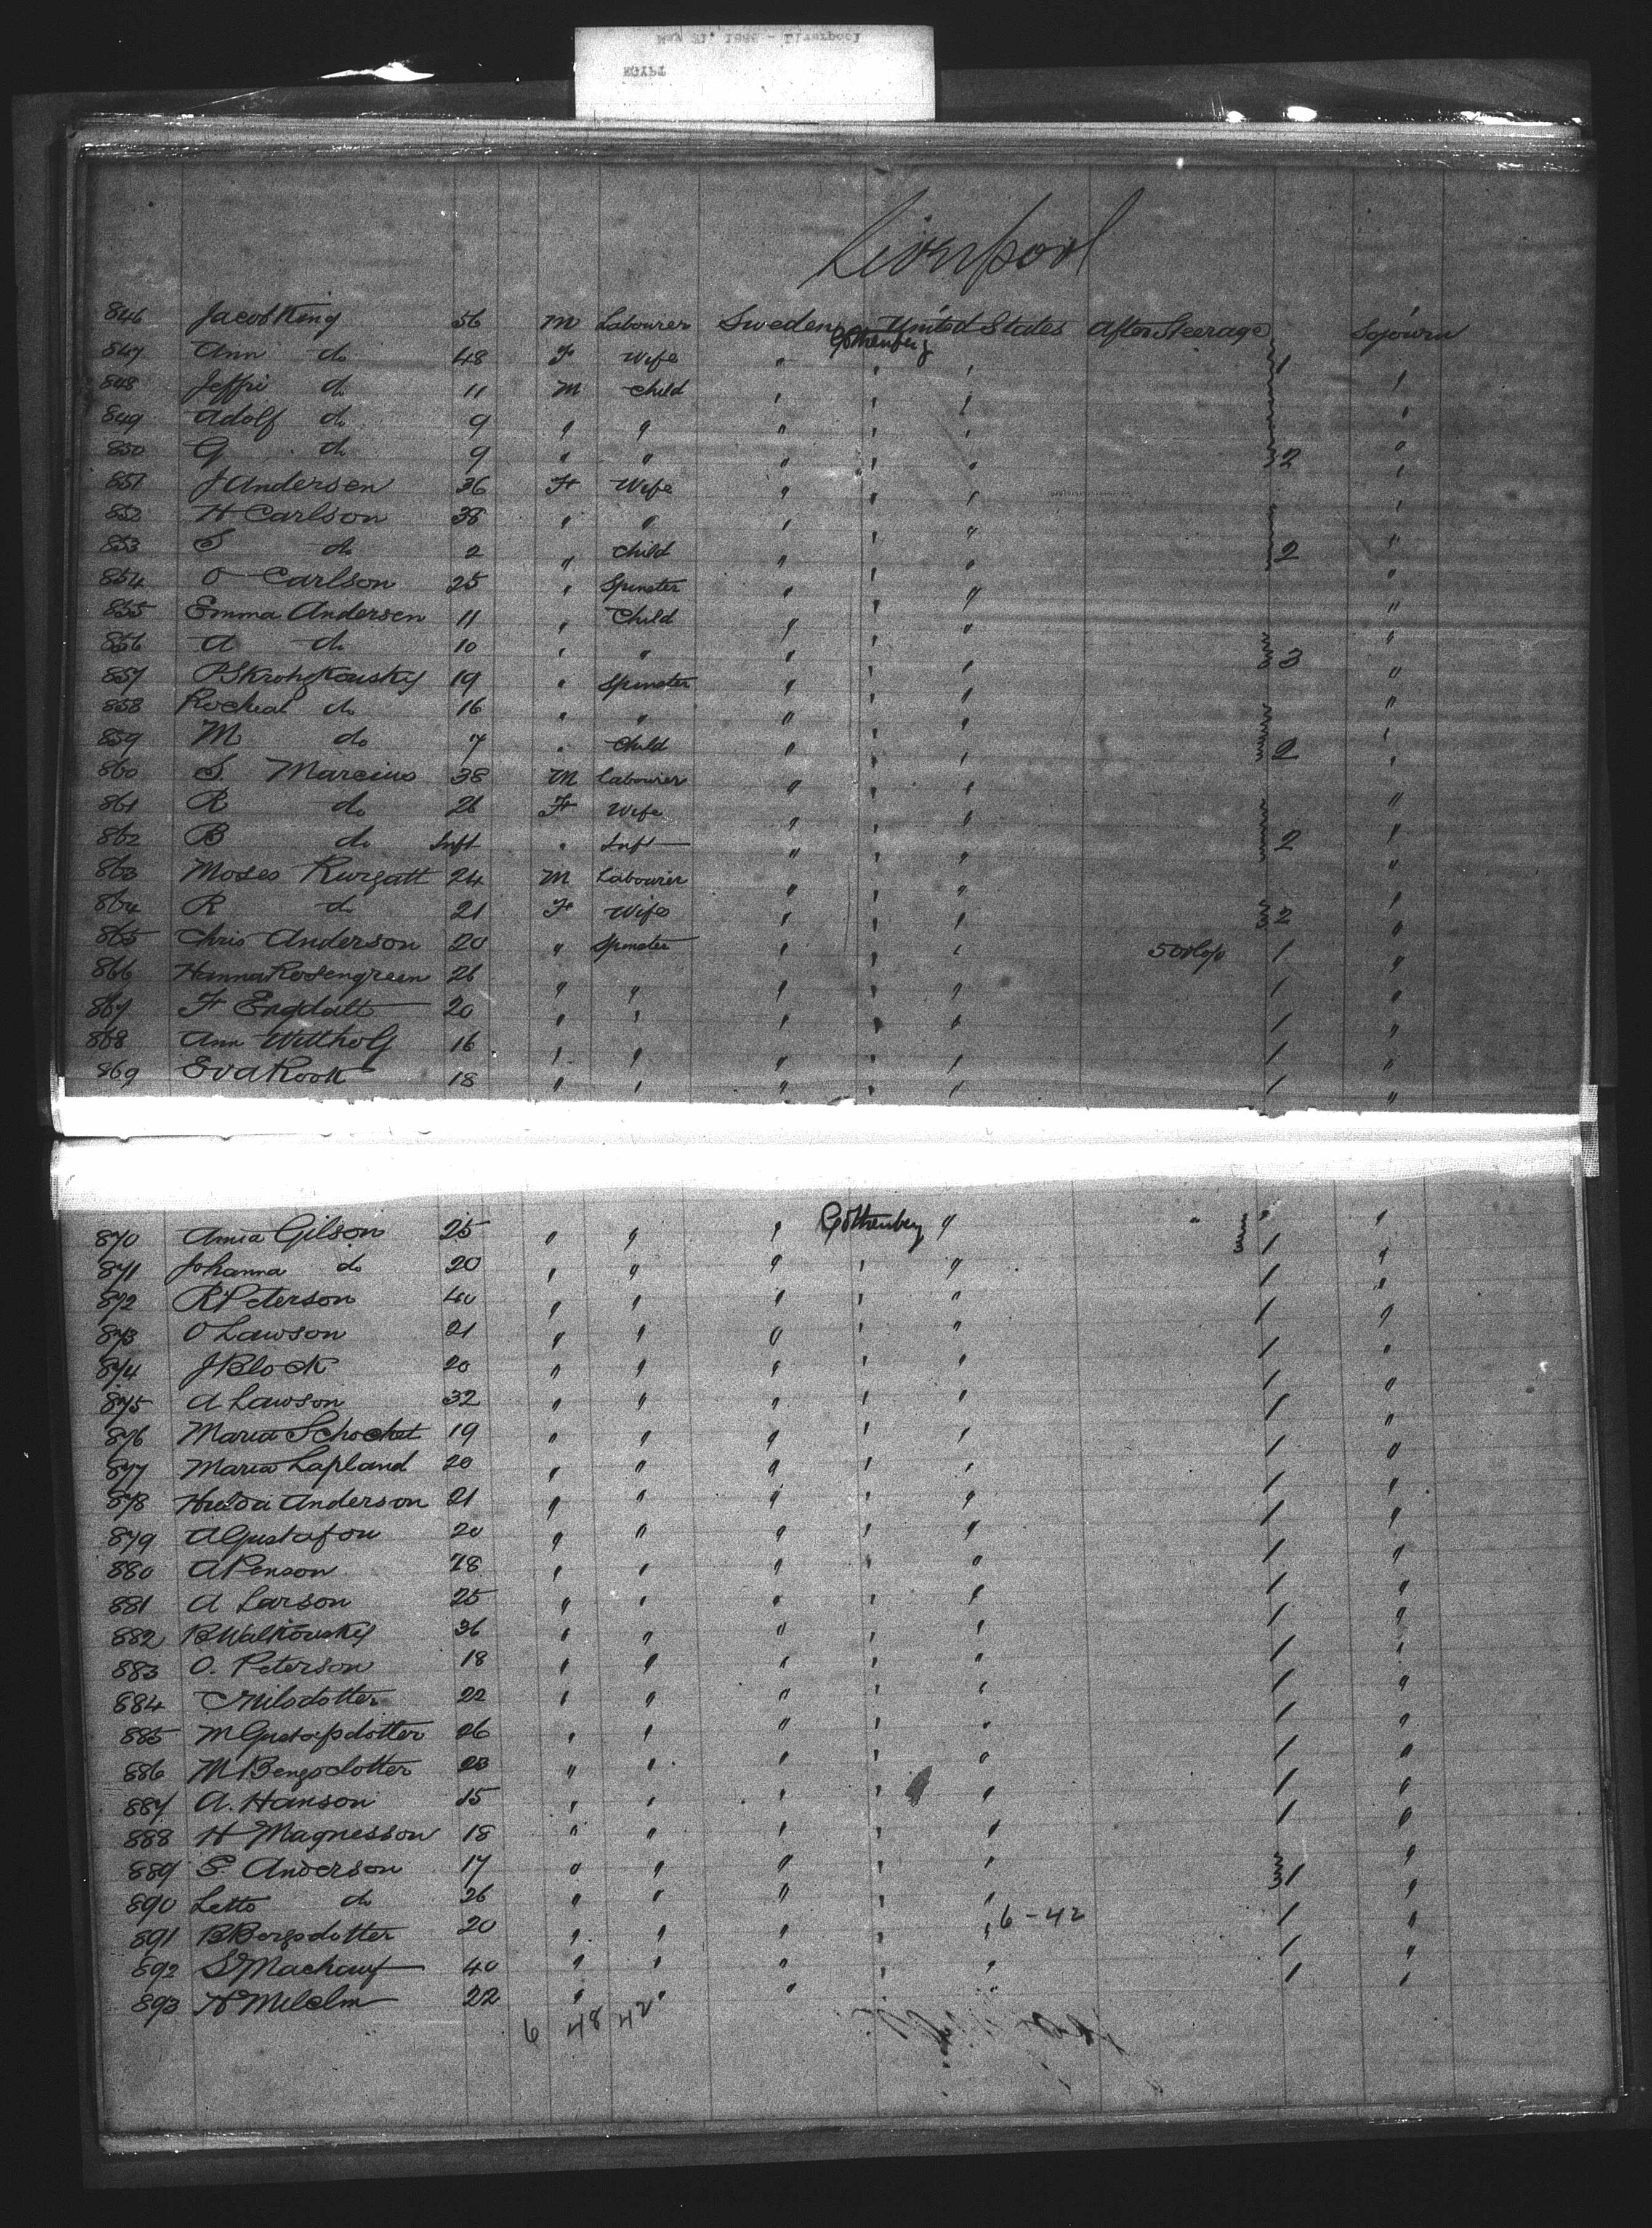 Liverpool
846 Jacob King 56 M Labourer Sweden Gothenberg United States After Steerage Sojourn
847 Ann do 48 F Wife " " " 1 "
848 Jeffri do 11 M Child " " " "
849 Adolf do 9 " " " " " "
850 G do 9 " " " " " 2 "
851 J Andersen 36 F Wife " " " "
852 H Carlson 38 " " " " " "
853 S do 2 " Child " " " 2 "
854 O Carlson 25 " Spinster " " " "
855 Emma Andersen 11 " Child " " " "
856 A do 10 " " " " " 3 "
857 19 " Spinster " " " "
858 Rocheal do 16 " " " " " "
859 M do 7 " Child " " " 2 "
860 S. Marcius 38 M Labourer " " " "
861 R do 26 F Wife " " " "
862 B do Inft " Inft " " " 2 "
863 Moses Kurgatt 24 M Labourer " " " "
864 R do 21 F Wife " " " 2 "
865 Chris Anderson 20 " Spinster " " " 1 "
866 Hanna Rosengreen 26 " " " " " 1 "
867 F Engdalt 20 " " " " " 1 "
868 Ann 16 " " " " " 1 "
869 Eva Rook 18 " " " " " 1 "
870 Amia Gilson 25 " " " Gothenberg " " " "
871 Johanna do 20 " " " " " 1 "
872 R Peterson 40 " " " " " 1 "
873 O Lawson 21 " " " " " 1 "
874 J Block 20 " " " " " 1 "
875 A Lawson 32 " " " " " 1 "
876 Maria Schochet 19 " " " " " 1 "
877 Maria Lapland 20 " " " " " 1 "
878 Hulda Anderson 21 " " " " " 1 "
879 A Gustafon 20 " " " " " 1 "
880 A Penson 28 " " " " " 1 "
881 A Larson 25 " " " " " 1 "
882 B Walkousky 36 " " " " " 1 "
883 O. Peterson 18 " " " " " 1 "
884 C Nilsdotter 22 " " " " " 1 "
885 M Gustafsdotter 26 " " " " " 1 "
886 M Bengsdotter 23 " " " " " 1 "
887 A. Hanson 15 " " " " " 1 "
888 H Magnesson 18 " " " " " 1 "
889 S. Anderson 17 " " " " " "
890 Letto do 26 " " " " " 1 "
891 B Borgsdotter 20 " " " " " 6-42 1 "
892 40 " " " " " 1 "
893 22 " " " 1 "
6 48 42